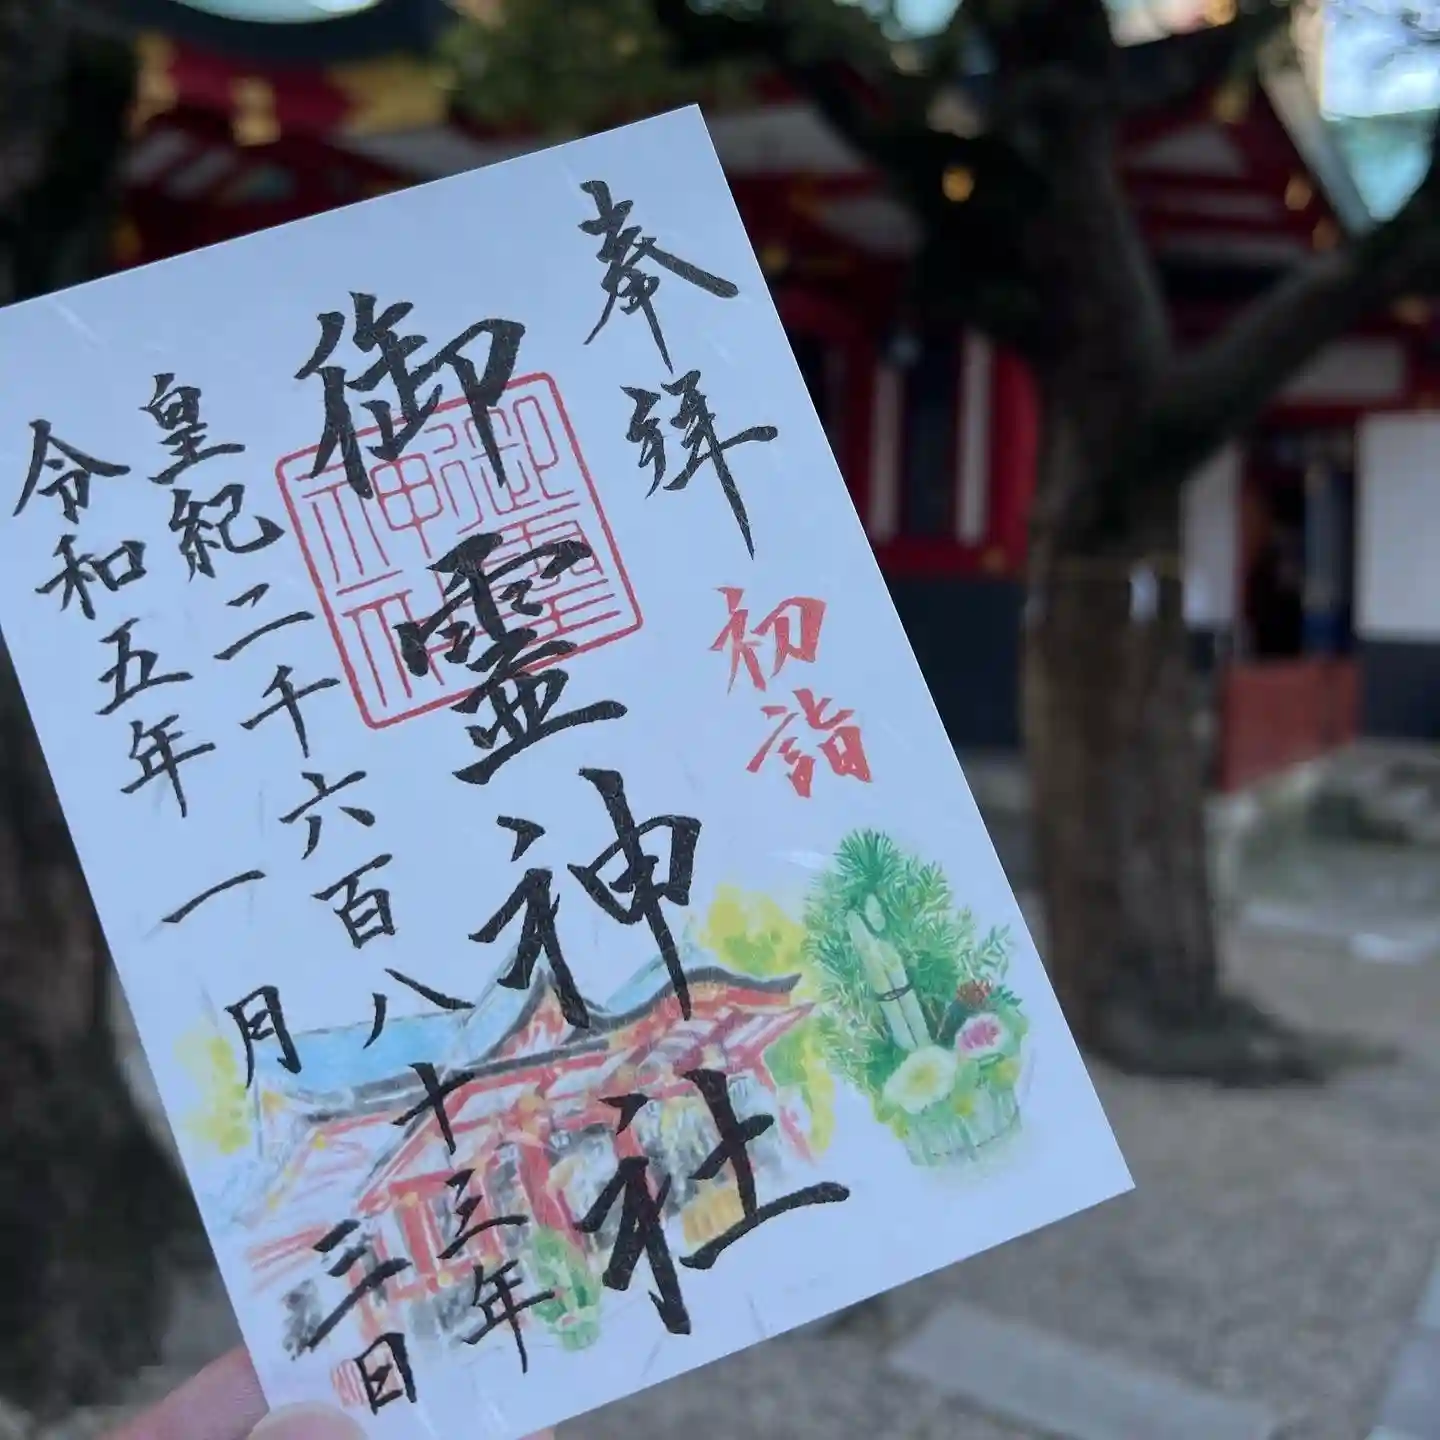 奉拝
初詣
御霊神社
御霊神社
皇紀二千六百八十三年
令和五年一月三日